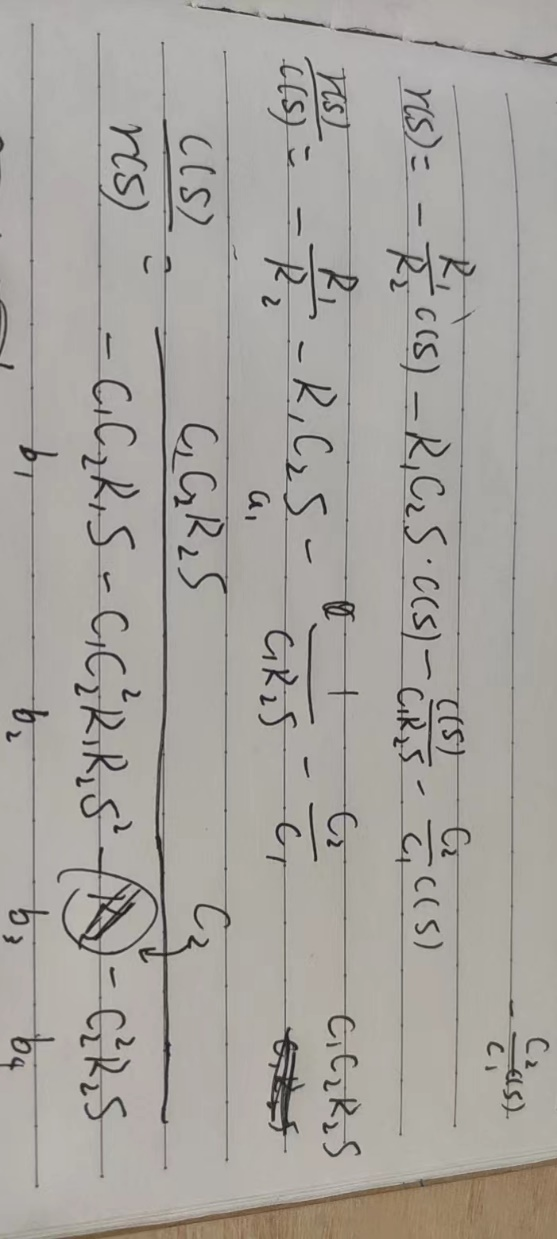 - C₂/C₁ C(S)
r(S) = - R₁/R₂ C(S) - R₁C₂S · C(S) - C(S)/C₁R₂S - C₂/C₁ C(S)
r(S)/C(S) = - R₁/R₂ - R₁C₂S - 1/C₁R₂S - C₂/C₁ C₁C₂R₂S
a₁
C(S)/r(S) = C₁C₂R₂S / - C₁C₂R₁S - C₁C₂²R₁R₂S² - C₂ - C₂²R₂S
b₁ b₂ b₃ b₄